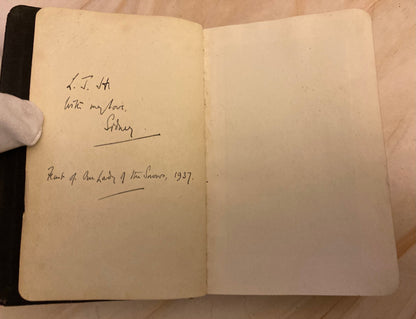 L. J. H.
With my love,
Sidney.
Feast of Our Lady of the Snows, 1937.